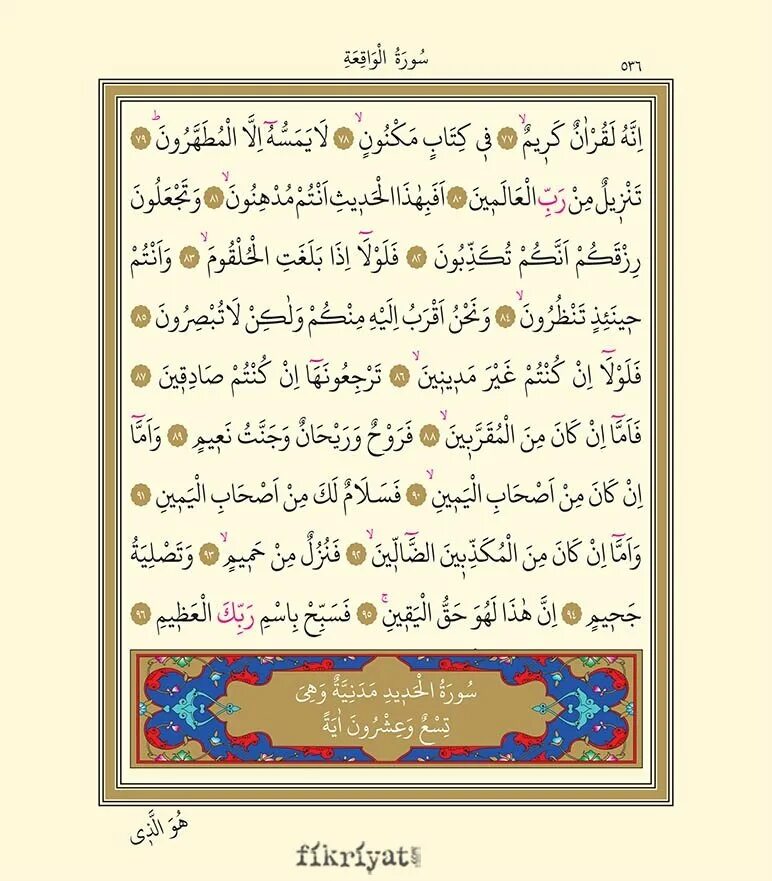 سُورَةُ الْوَاقِعَةِ
٥٣٦
اِنَّهُ لَقُرْاٰنٌ كَر۪يمٌۙ ٧٧ ف۪ي كِتَابٍ مَكْنُونٍۙ ٧٨ لَا يَمَسُّهُٓ اِلَّا الْمُطَهَّرُونَۜ ٧٩
تَنْز۪يلٌ مِنْ رَبِّ الْعَالَم۪ينَ ٨٠ اَفَبِهٰذَا الْحَد۪يثِ اَنْتُمْ مُدْهِنُونَۙ ٨١ وَتَجْعَلُونَ
رِزْقَكُمْ اَنَّكُمْ تُكَذِّبُونَ ٨٢ فَلَوْلَٓا اِذَا بَلَغَتِ الْحُلْقُومَۙ ٨٣ وَاَنْتُمْ
ح۪ينَئِذٍ تَنْظُرُونَۙ ٨٤ وَنَحْنُ اَقْرَبُ اِلَيْهِ مِنْكُمْ وَلٰكِنْ لَا تُبْصِرُونَ ٨٥
فَلَوْلَٓا اِنْ كُنْتُمْ غَيْرَ مَد۪ين۪ينَۙ ٨٦ تَرْجِعُونَهَٓا اِنْ كُنْتُمْ صَادِق۪ينَ ٨٧
فَاَمَّٓا اِنْ كَانَ مِنَ الْمُقَرَّب۪ينَۙ ٨٨ فَرَوْحٌ وَرَيْحَانٌ وَجَنَّتُ نَع۪يمٍ ٨٩ وَاَمَّٓا
اِنْ كَانَ مِنْ اَصْحَابِ الْيَم۪ينِۙ ٩٠ فَسَلَامٌ لَكَ مِنْ اَصْحَابِ الْيَم۪ينِ ٩١
وَاَمَّٓا اِنْ كَانَ مِنَ الْمُكَذِّب۪ينَ الضَّٓالّ۪ينَۙ ٩٢ فَنُزُلٌ مِنْ حَم۪يمٍۙ ٩٣ وَتَصْلِيَةُ
جَح۪يمٍ ٩٤ اِنَّ هٰذَا لَهُوَ حَقُّ الْيَق۪ينِۚ ٩٥ فَسَبِّحْ بِاسْمِ رَبِّكَ الْعَظ۪يمِ ٩٦
سُورَةُ الْحَد۪يدِ مَدَنِيَّةٌ وَهِيَ
تِسْعٌ وَعِشْرُونَ اٰيَةً
هُوَ الَّذ۪ي
fikriyat